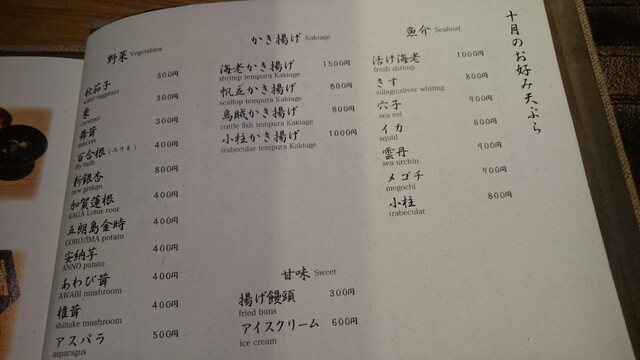 十月のお好み天ぷら
魚介 Seafood
活け海老 1000円
fresh shrimp
きす 800円
sillago;silver whiting
穴子 900円
sea eel
イカ 600円
squid
雲丹 900円
sea urchin
メゴチ 900円
megochi
小柱 800円
trabecular
かき揚げ Kakiage
海老かき揚げ 1500円
shrimp tempura Kakiage
帆立かき揚げ 800円
scallop tempura Kakiage
烏賊かき揚げ 800円
cuttle fish tempura Kakiage
小柱かき揚げ 1000円
trabecular tempura Kakiage
甘味 Sweet
揚げ饅頭 300円
fried buns
アイスクリーム 600円
ice cream
野菜 Vegetables
秋茄子 300円
栗 300円
舞茸 300円
百合根（ユリネ） 400円
lily bulb
新銀杏 800円
new ginkgo
加賀蓮根 400円
KAGA Lotus root
五朗島金時 400円
GOROJIMA potato
安納芋 400円
ANNO potato
あわび茸 400円
AWABI mushroom
椎茸 400円
shiitake mushroom
アスパラ 500円
asparagus